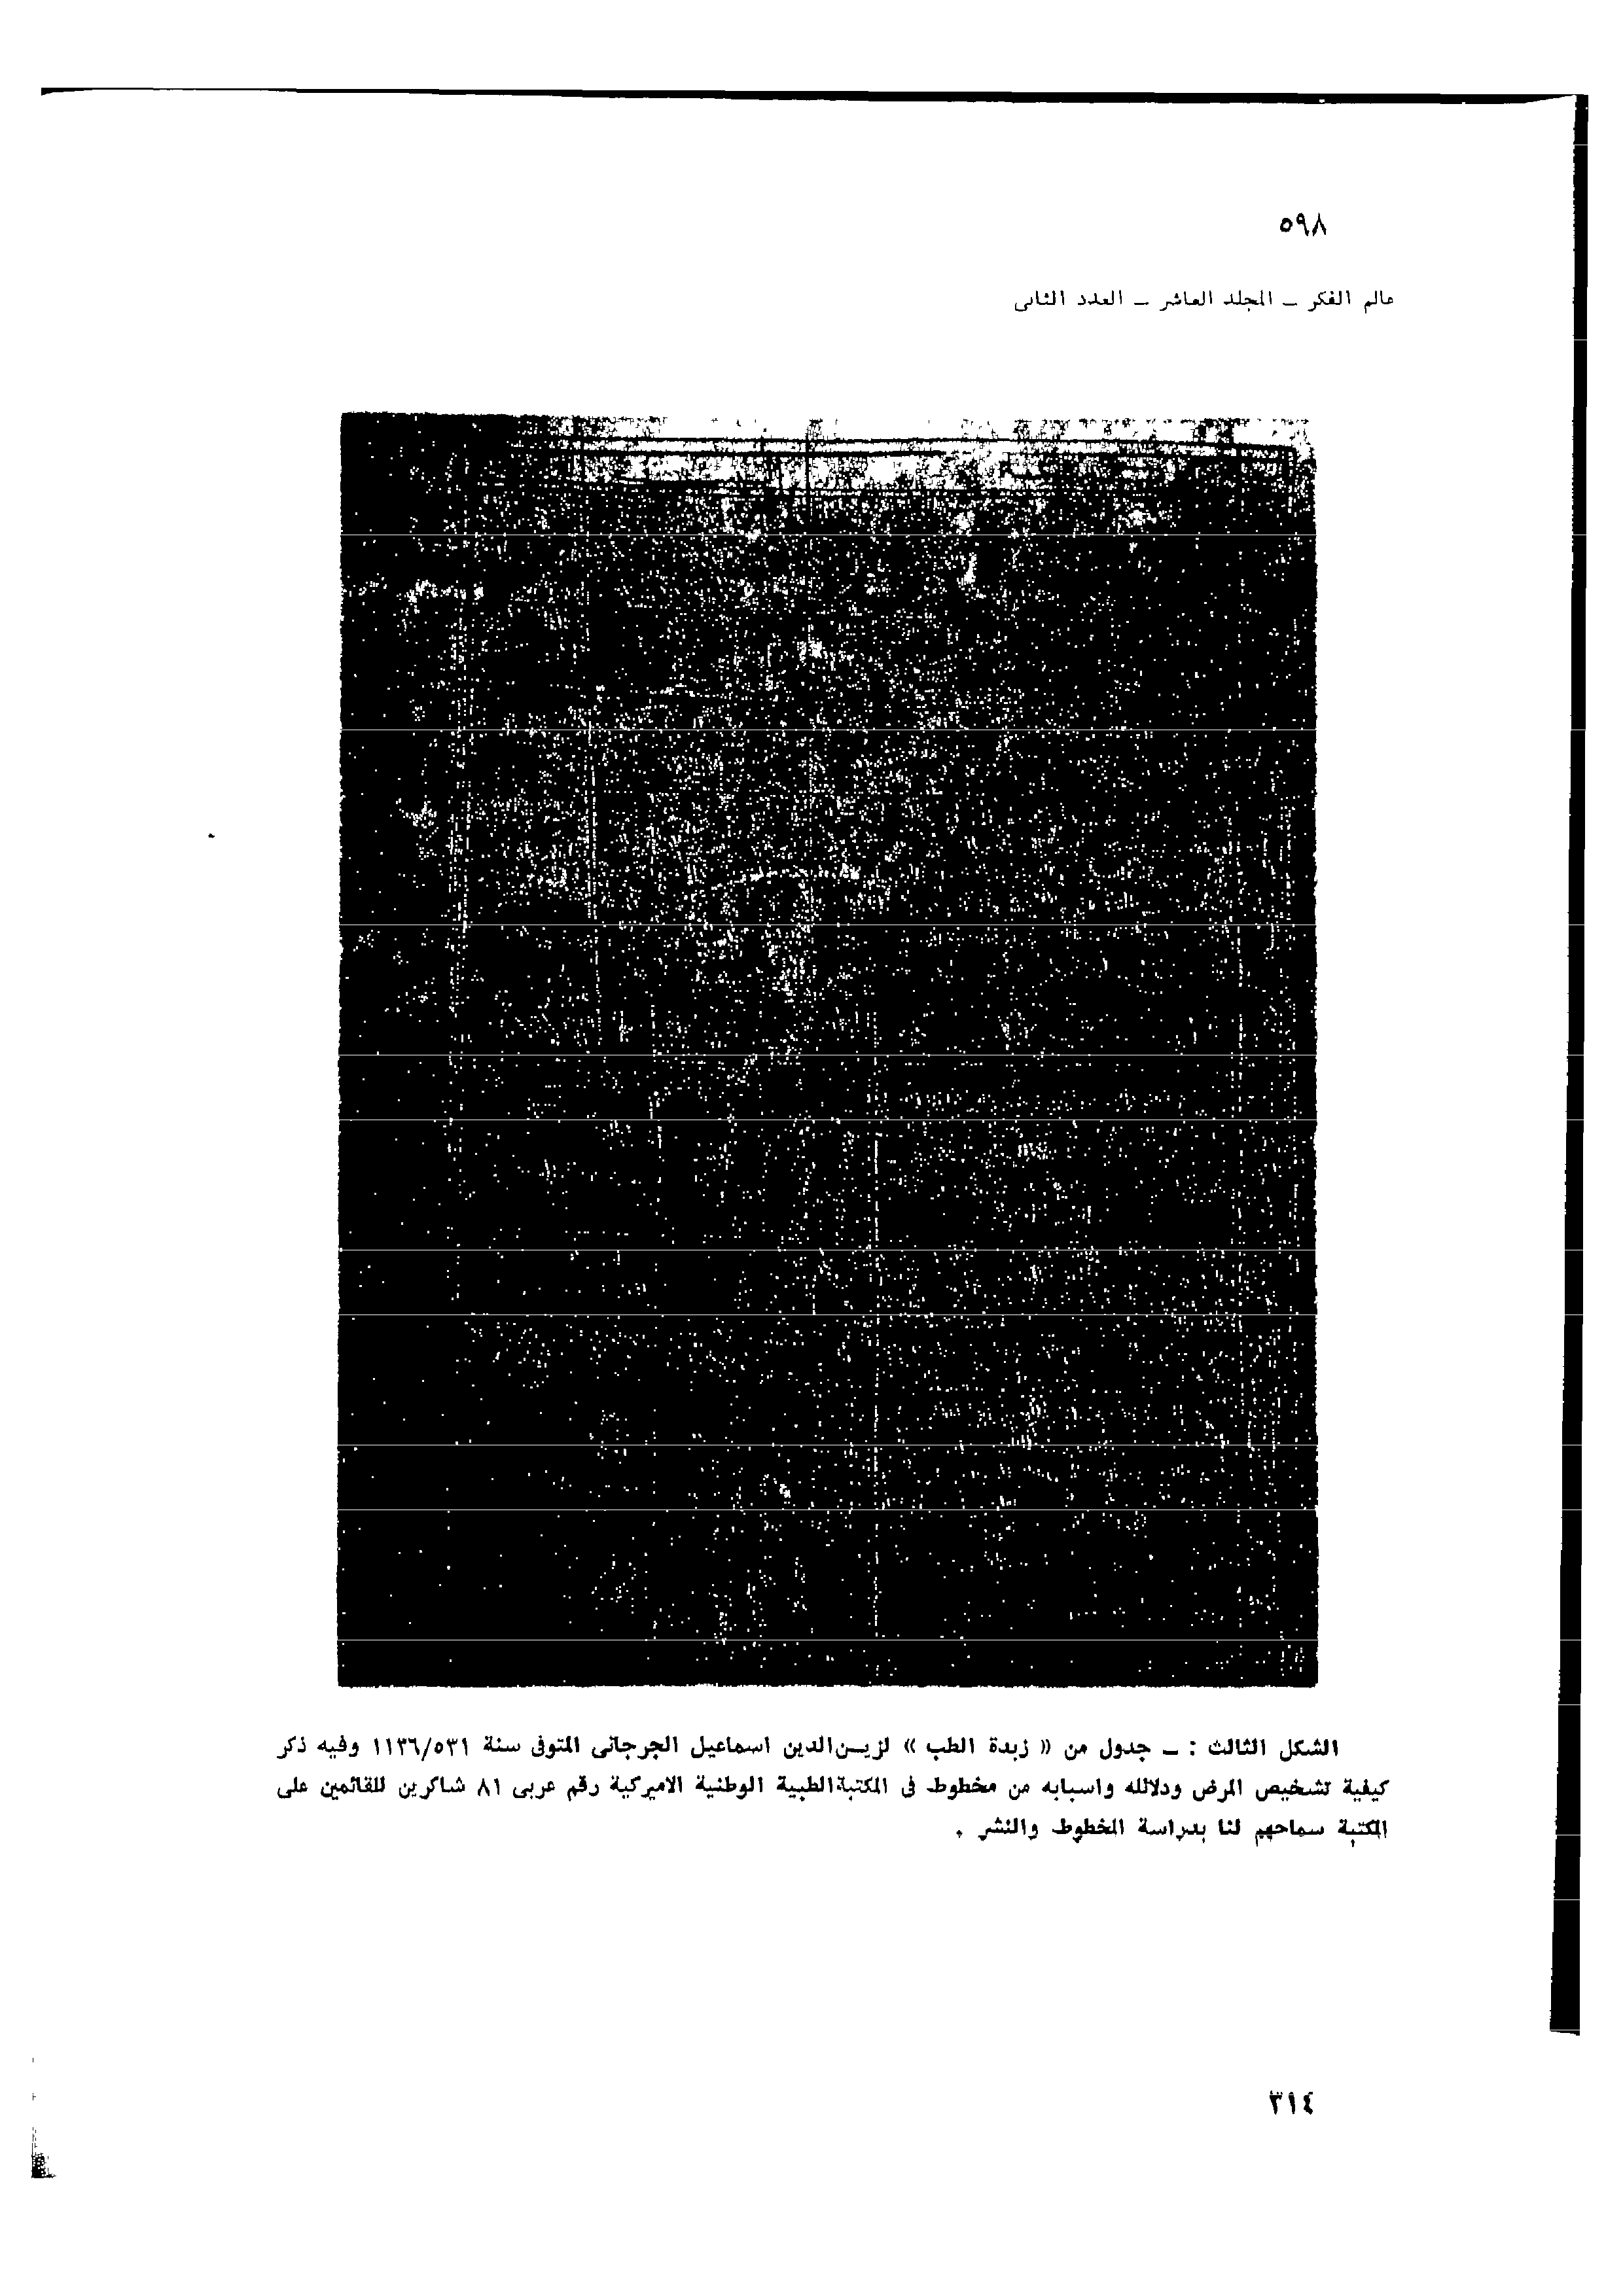 ٥٩٨
عالم الفكر ـ المجلد العاشر ـ العدد الثانى
الشكل الثالث : ـ جدول من « زبدة الطب » لزيـن الدين اسماعيل الجرجانى المتوفى سنة ١١٣٦/٥٣١ وفيه ذكر
كيفية تشخيص المرض ودلائله واسبابه من مخطوط فى المكتبة الطبية الوطنية الاميركية رقم عربى ٨١ شاكرين للقائمين على
المكتبة سماحهم لنا بدراسة المخطوط والنشر .
٣١٤